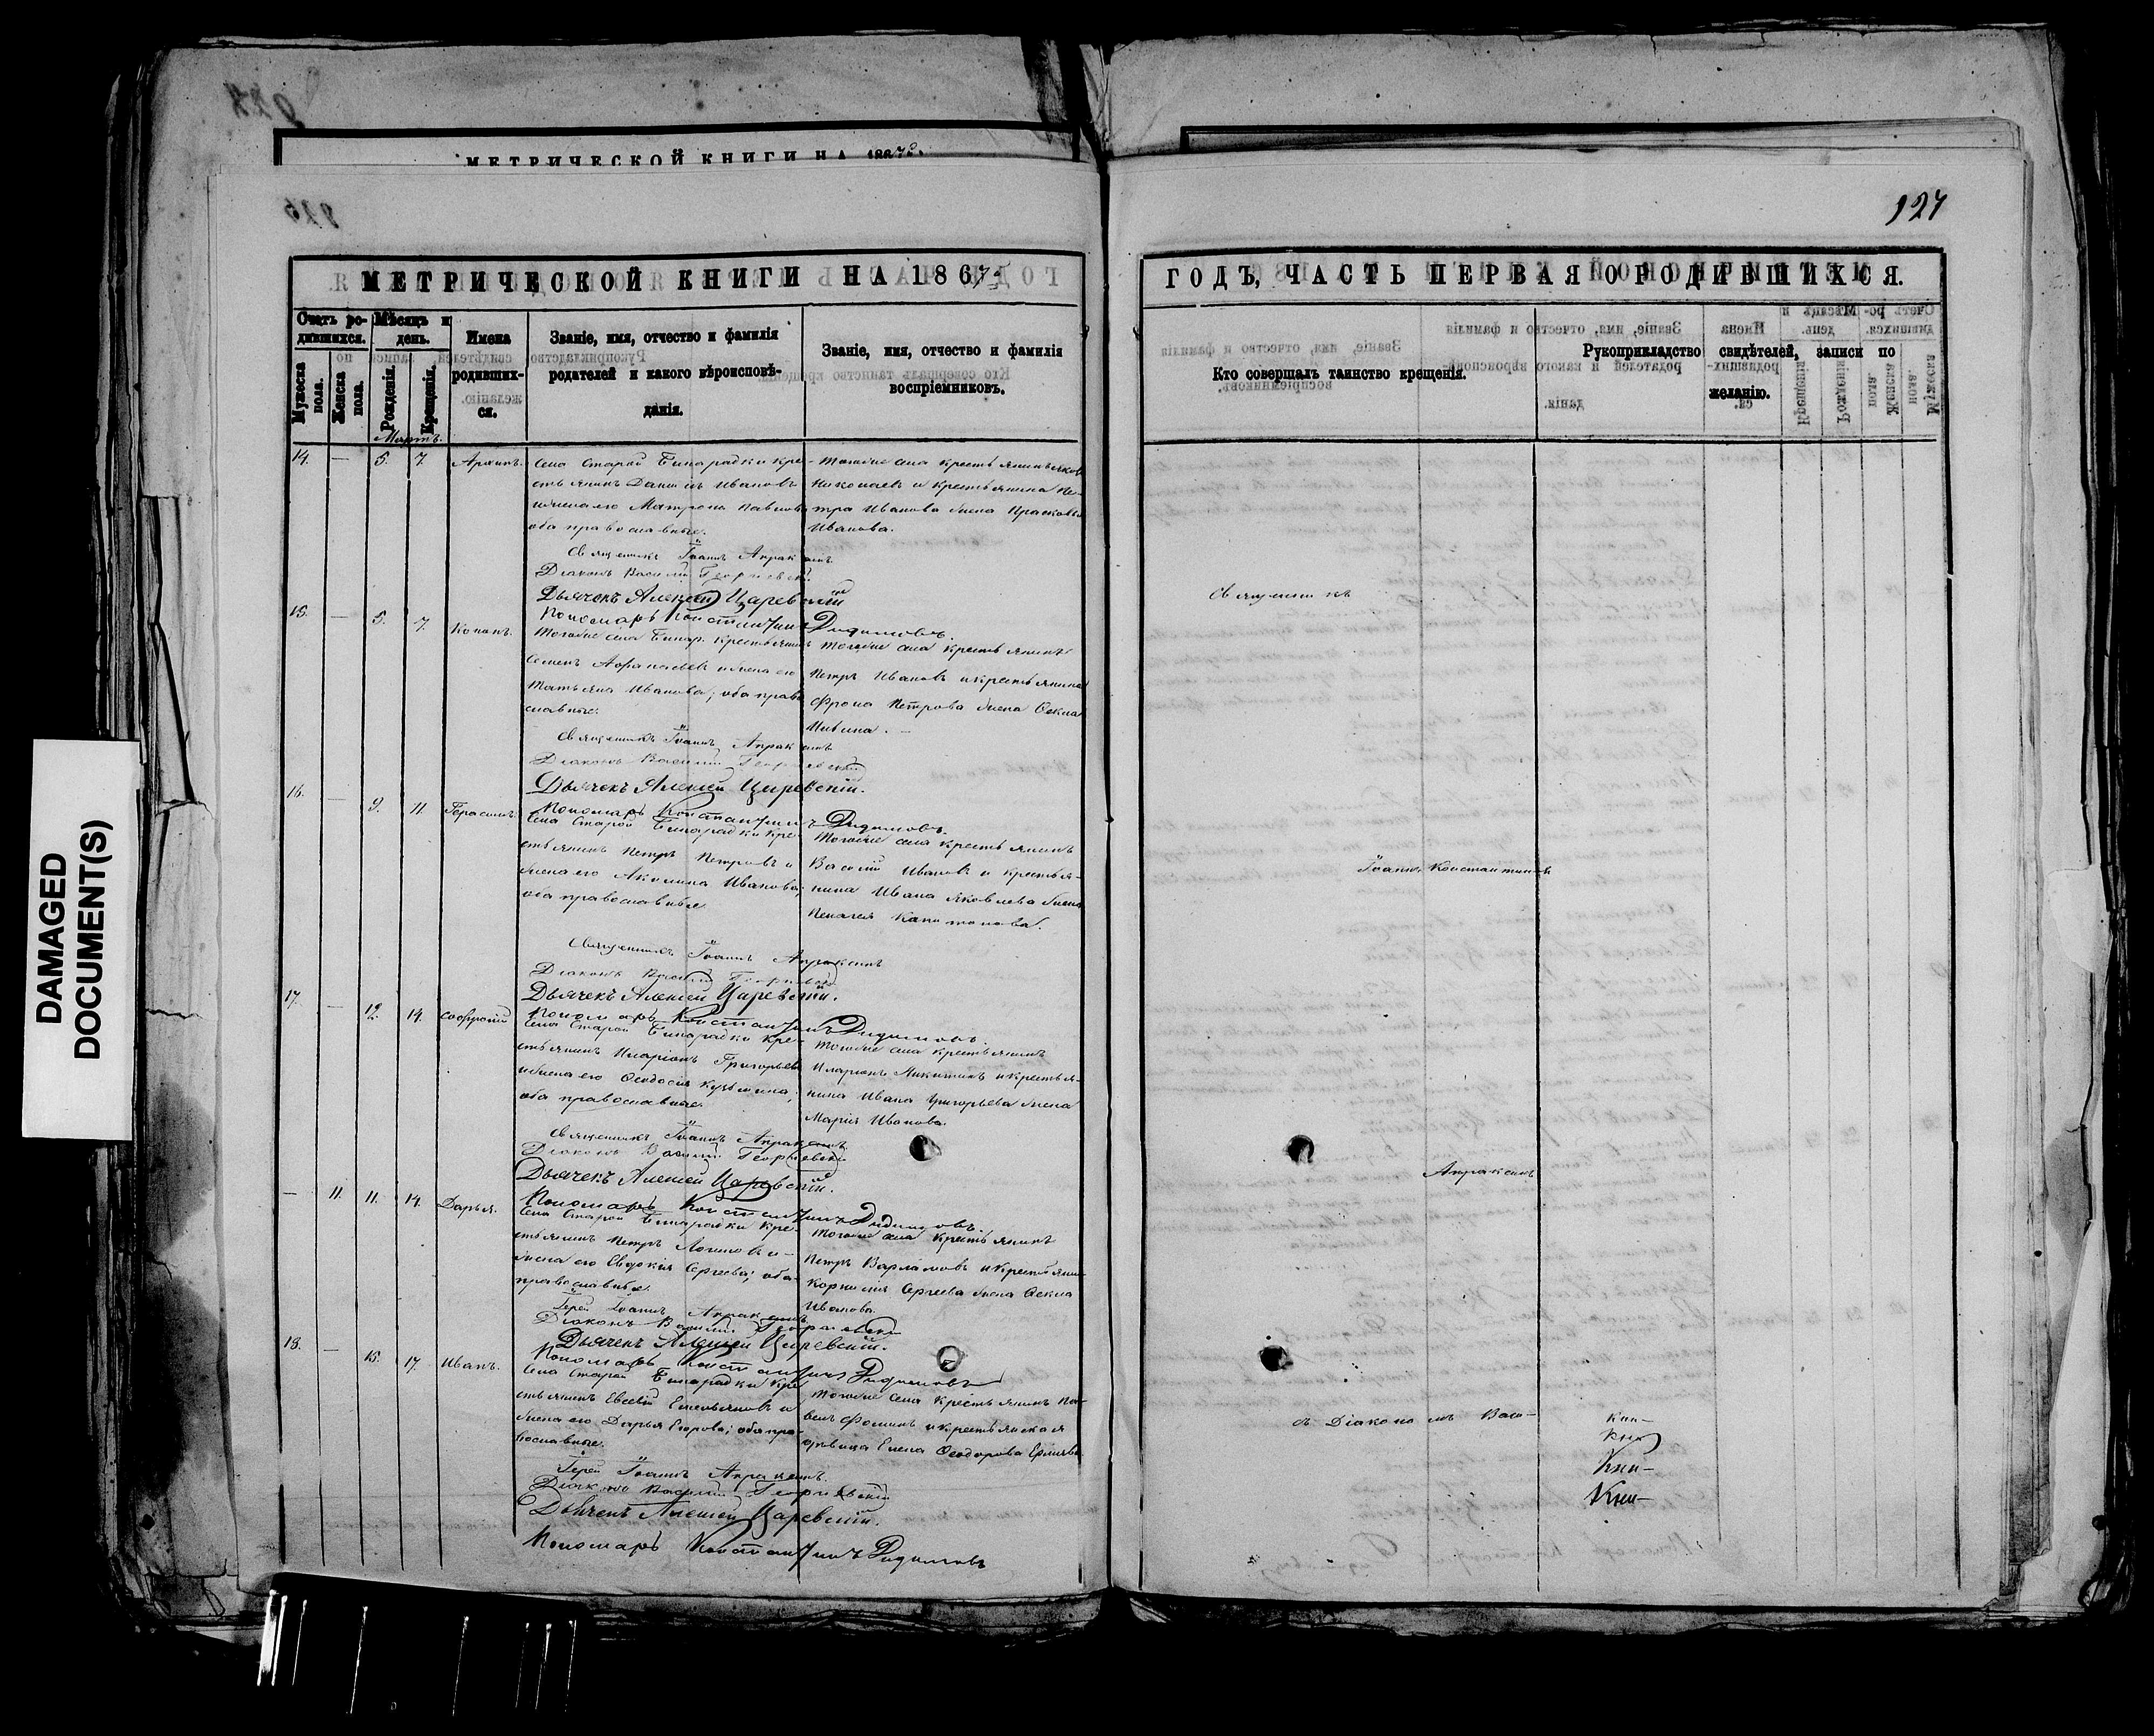 МЕТРИЧЕСКОЙ КНИГИ НА 186
127
МЕТРИЧЕСКОЙ КНИГИ НА 1867
ГОДЪ, ЧАСТЬ ПЕРВАЯ О РОДИВШИХСЯ.
Счетъ ро-
дившихся.
Мѣсяцъ и
день.
Мужеска пола.
Женска пола.
Рожденія.
Крещенія.
Имена
родивших-
ся.
Званіе, имя, отчество и фамилія
родителей и какого вѣроисповѣ-
данія.
Званіе, имя, отчество и фамилія
воспріемниковъ.
Кто совершалъ таинство крещенія.
Рукоприкладство свидѣтелей, записи по
желанію.
Мартъ.
14. — 5. 7. Архипъ.
Села Старой Бинарадки кре-
стьянинъ Данiилъ Ивановъ
и жена его Матрона Павлова
оба православные.
Тогоже села крестьянинъ Яковъ
Николаевъ и крестьянина Пе-
тра Иванова жена Прасковья
Иванова.
Священникъ Іоаннъ Апраксинъ
Діаконъ Василій Георгіевскій
Дьячекъ Алексей Царевскій
Пономарь Константинъ Дидимовъ.
15. — 5. 7. Кононъ.
Тогоже села Бинар. крестьянинъ
Семенъ Афанасьевъ и жена его
Татьяна Иванова; оба право
славные.
Тогоже села крестьянинъ
Петръ Ивановъ и крестьянина
Фрола Петрова жена Ѳекла
Священникъ Іоаннъ Апраксинъ
Діаконъ Василій Георгіевскій
Дьячекъ Алексей Царевскій.
Пономарь Константинъ Дидимовъ.
16. — 9. 11. Герасимъ.
Села Старой Бинарадки кре-
стьянинъ Петръ Петровъ и
жена его Акилина Иванова;
оба православные
Тогоже села крестьянинъ
Василій Ивановъ и крестья-
нина Ивана Яковлева жена
Пелагея Капитонова.
Священникъ Іоаннъ Апраксинъ
Діаконъ Василій Георгіевскій
Дьячекъ Алексей Царевскій.
Пономарь Константинъ Дидимовъ.
17. — 12. 14. Софроній
Села Старой Бинарадки кре-
стьянинъ Иларіонъ Григорьевъ
и жена его Ѳеодосія Кузьмина;
оба православные.
Тогоже села крестьянинъ
Иларіонъ Никитинъ и крестья-
нина Ивана Григорьева жена
Марія Иванова.
Священникъ Іоаннъ Апраксинъ
Діаконъ Василій Георгіевскій
Дьячекъ Алексей Царевскій.
Пономарь Константинъ Дидимовъ.
— 11. 11. 14. Дарья.
Села Старой Бинарадки кре-
стьянинъ Петръ Логиновъ и
жена его Евдокія Сергеева; оба
православные.
Тогоже села крестьянинъ
Петръ Варламовъ и крестьянина
Корнилія Сергеева жена Ѳекла
Иванова.
Іерей Іоаннъ Апраксинъ
Діаконъ Василій Георгіевскій
Дьячекъ Алексей Царевскій.
Пономарь Константинъ Дидимовъ
18. — 15. 17. Иванъ.
Села Старой Бинарадки кре
стьянинъ Евсевій Емельяновъ и
жена его Дарья Егорова; оба пра-
вославные.
Тогоже села крестьянинъ Па-
велъ Фоминъ и крестьянская
вдовица Елена Ѳеодорова
Іерей Іоаннъ Апраксинъ.
Діаконъ Василій Георгіевскій
Дьячекъ Алексей Царевскій.
Пономарь Константинъ Дидимовъ
Священникъ
Іоаннъ Константиновъ
Апраксинъ
съ Діакономъ Васи-